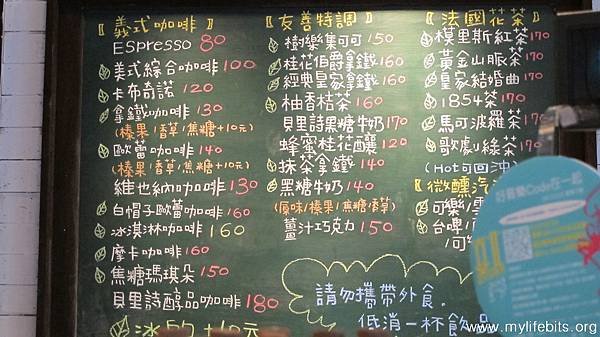 〖義式咖啡〗
Espresso 80
美式綜合咖啡 100
卡布奇諾 120
拿鐵咖啡 130
(榛果/香草/焦糖+10元)
歐蕾咖啡 140
(榛果/香草/焦糖+10元)
維也納咖啡 130
白帽子歐蕾咖啡 160
冰淇淋咖啡 160
摩卡咖啡 160
焦糖瑪琪朵 150
貝里詩醇品咖啡 180
冰飲+10元
〖友善特調〗
樹樂集可可 150
桂花伯爵拿鐵 160
經典皇家拿鐵 160
柚香桔茶 160
貝里詩黑糖牛奶 170
蜂蜜桂花釀 120
抹茶拿鐵 140
黑糖牛奶 140
(原味/榛果/焦糖/香草)
薑汁巧克力 150
〖法國花茶〗
模里斯紅茶 170
黃金山脈茶 170
皇家結婚曲 170
1854茶 170
馬可波羅茶 170
歌劇綠茶 170
(Hot可回沖)
〖微醺汽
可樂/雪
台啤
/可
請勿攜帶外食。
低消一杯飲品
好餐點Code在一起
www.mylifebits.org